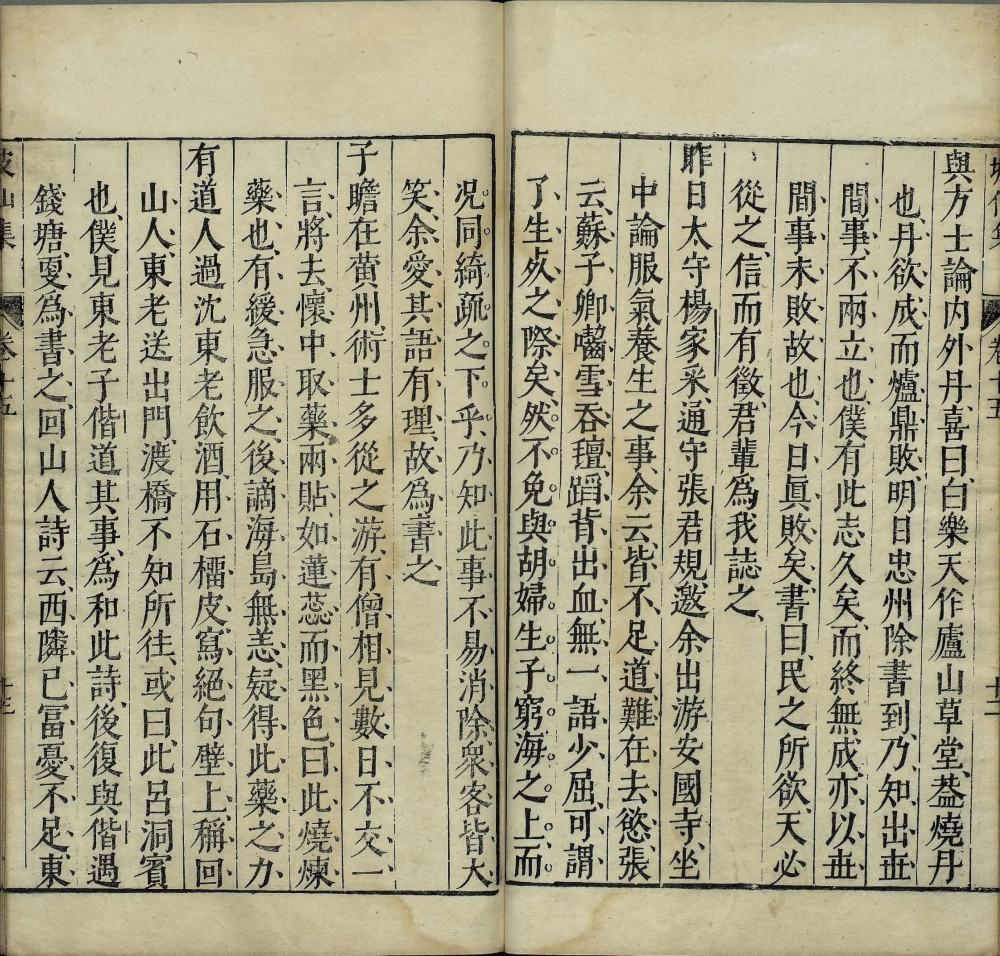 與方士論内外丹、喜曰、白樂天作廬山草堂、葢燒丹
也、丹欲成而爐鼎敗、明日忠州除書到、乃知、出丗
間事、不兩立也、僕有此志久矣、而終無成、亦以丗
間事未敗故也、今日眞敗矣、書曰、民之所欲、天必
從之、信而有徵、君輩爲我誌之、
昨日太守楊家釆、通守張君規、邀余出游安國寺、坐
中論服氣養生之事、余云、皆不足道、難在去慾、張
云、蘇子卿囓雪吞氊、蹈背出血、無一語少屈、可謂
了生死之際矣、然不免與胡婦生子窮海之上、而
況同綺疏之下乎、乃知此事不易消除、衆客皆大
笑、余愛其語有理、故爲書之
子瞻在黄州、術士多從之游、有僧相見、數日不交一
言、將去、懷中取藥兩貼、如蓮蕊而黑色、曰、此燒煉
藥也、有緩急服之、後謫海島無恙、疑得此藥之力
有道人過沈東老飲酒、用石榴皮寫絕句壁上、稱回
山人、東老送出門、渡橋不知所往、或曰、此呂洞賓
也、僕見東老子偕、道其事、爲和此詩、後復與偕遇
錢塘、更爲書之、回山人詩云、西隣已冨憂不足、東
卷十五